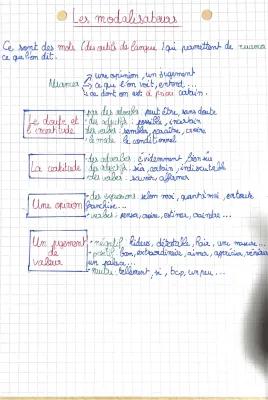 Les modalisateurs
Ce sont des mots (des outils de langue) qui permettent de nuancer
ce que l'on dit.
→ une opinion, un jugement
Nuancer → ce que l'on voit, entend ...
→ ce dont on est à priori certain.
Le doute et l'incertitude
- par des adverbes peut être, sans doute
- des adjectifs : possible, incertain
- des verbes : sembler, paraître, croire
- le mode : le conditionnel
La certitude
- des adverbes : évidemment, bien sûr
- des adjectifs : sûr, certain, indiscutable
- des verbes : savoir, affirmer
Une opinion
- des expressions selon moi, quant à moi, en toute
franchise...
- verbes : penser, croire, estimer, craindre ...
Un jugement de valeur
- négatif : hideux, détestable, haïr, une masure...
- positif : bon, extraordinaire, aimer, apprécier,
un palace...
- neutre : tellement, si, bcp, un peu ...